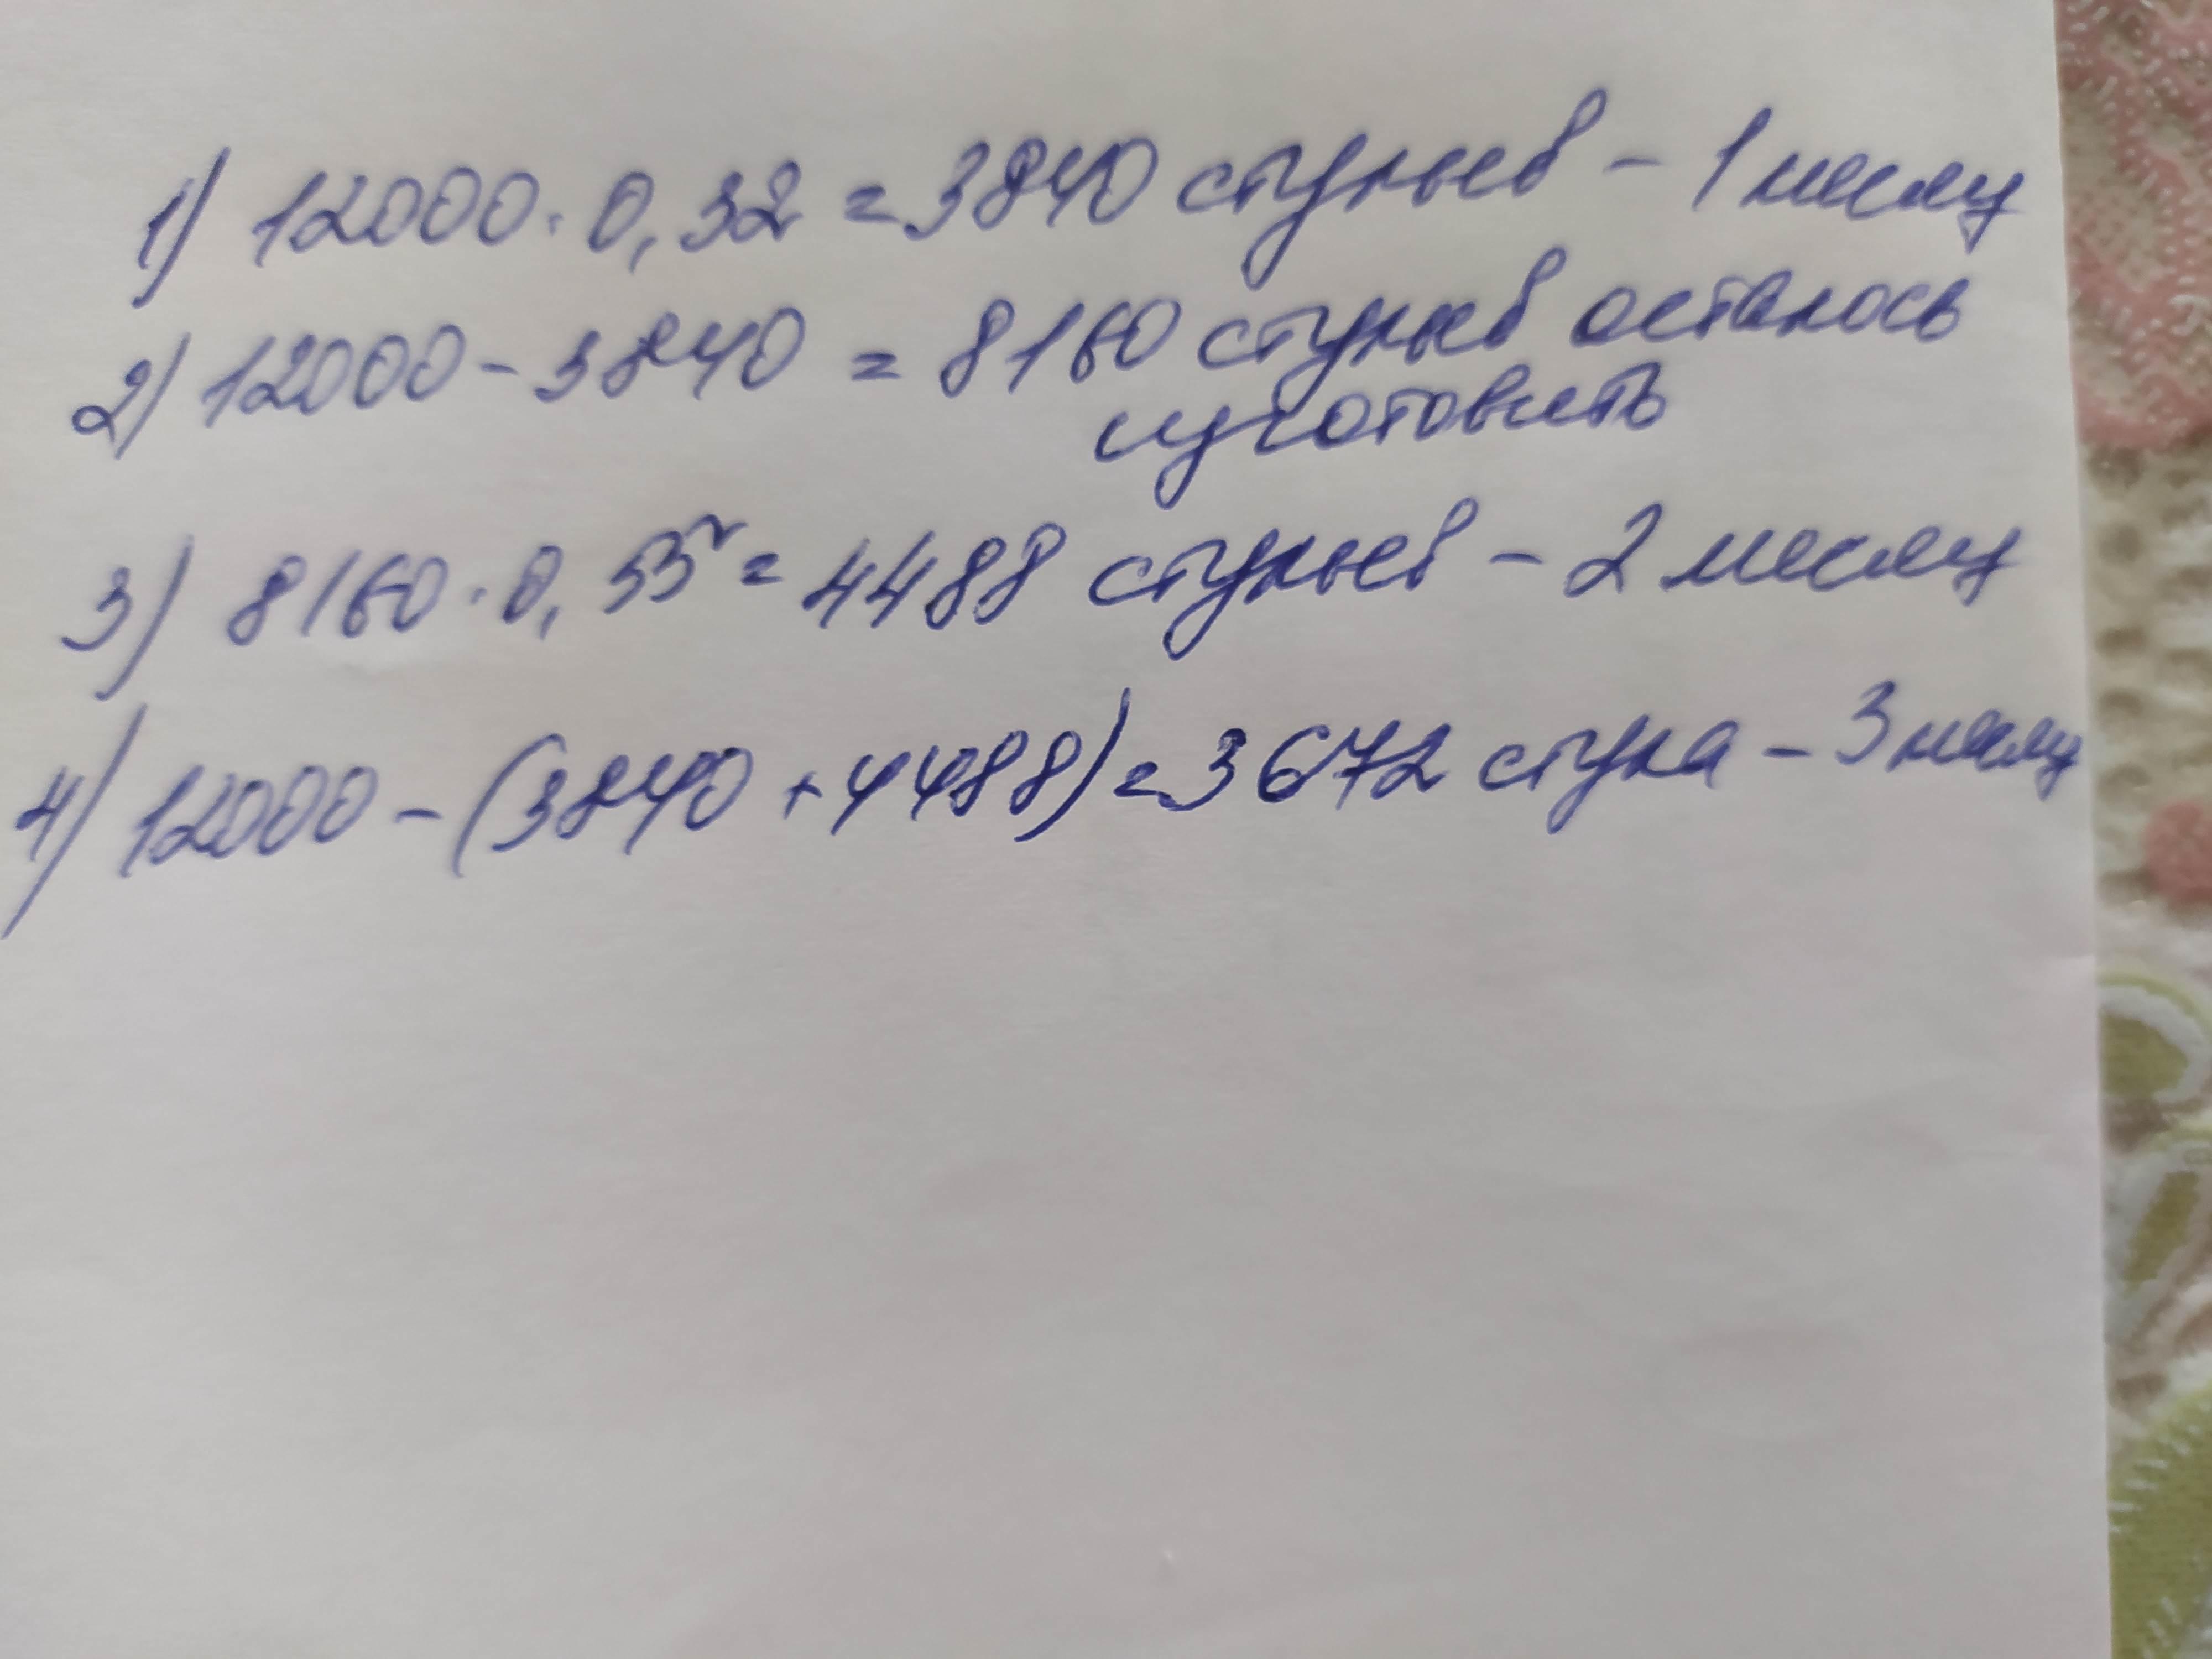 1) 12000 · 0,32 = 3840 стульев – 1 месяц
2) 12000 – 3840 = 8160 стульев осталось
изготовить
3) 8160 · 0,55 = 4488 стульев – 2 месяц
4) 12000 – (3840 + 4488) = 3672 стула – 3 месяц